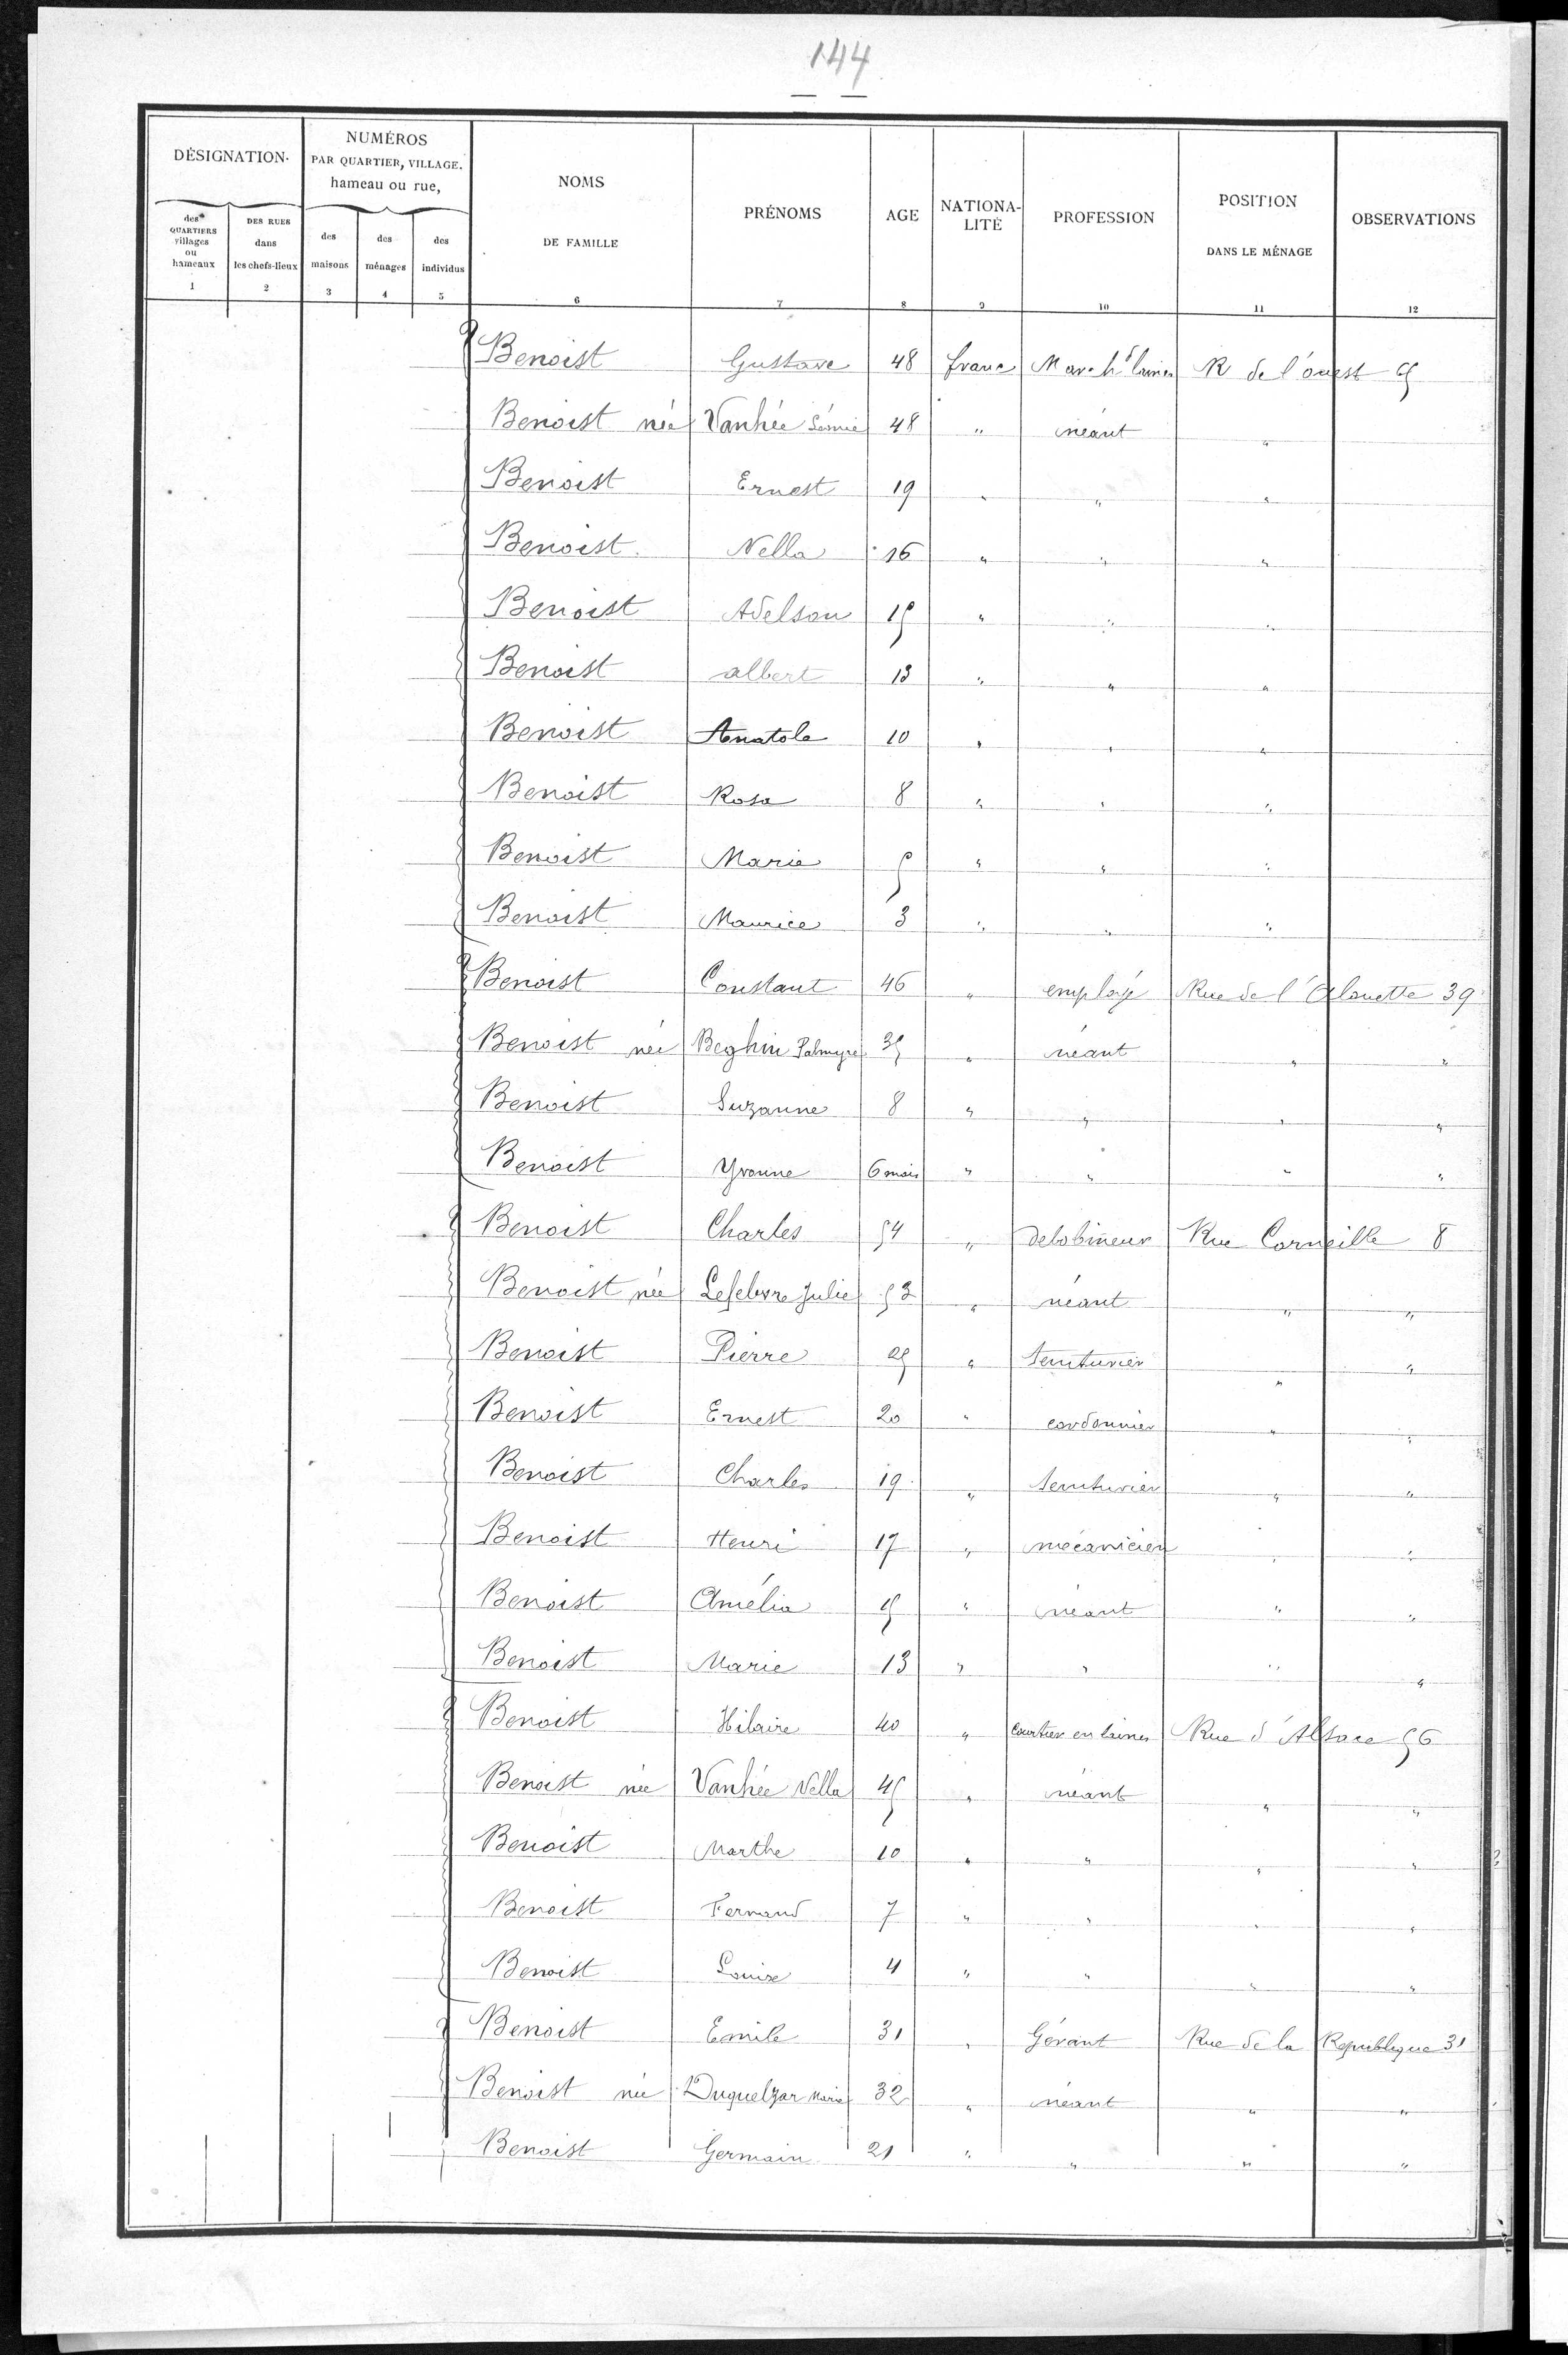 144
DÉSIGNATION
NUMÉROS PAR QUARTIER, VILLAGE. hameau ou rue,
NOMS DE FAMILLE
PRÉNOMS
AGE
NATIONA-LITÉ
PROFESSION
POSITION DANS LE MÉNAGE
OBSERVATIONS
des QUARTIERS villages ou hameaux
DES RUES dans les chefs-lieux
des maisons
des ménages
des individus
1 2 3 4 5 6 7 8 9 10 11 12
Benoist Gustave 48 franc March d laines R de l'ouest
Benoist née Vanhée Léonie 48 " néant "
Benoist Ernest 19 " " "
Benoist Nella 16 " " "
Benoist Adelson 15 " " "
Benoist albert 13 " " "
Benoist Anatole 10 " " "
Benoist Rosa 8 " " "
Benoist Marie 5 " " "
Benoist Maurice 3 " " "
Benoist Constant 46 " employé Rue de l'Alouette 39
Benoist née Beghin Palmyre 35 " néant " "
Benoist Suzanne 8 " " " "
Benoist Yvonne 6 mois " " " "
Benoist Charles 54 " debobineur Rue Corneille 8
Benoist née Lefebvre Julie 53 " néant " "
Benoist Pierre 25 " teinturier " "
Benoist Ernest 20 " cordonnier " "
Benoist Charles 19 " teinturier " "
Benoist Henri 17 " mécanicien " "
Benoist Amélia 15 " néant " "
Benoist Marie 13 " " " "
Benoist Hilaire 40 " Courtier en laines Rue d'Alsace 56
Benoist née Vanhée Nella 45 " néant " "
Benoist Marthe 10 " " " "
Benoist Fernand 7 " " " "
Benoist Louise 4 " " " "
Benoist Emile 31 " Gérant Rue de la Republique 31
Benoist née Duquelzar Marie 32 " néant " "
Benoist Germain 21 " " " "